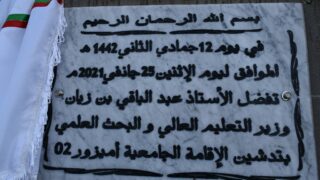 بسم الله الرحمان الرحيم
في يوم 12 جمادي الثاني 1442 ه
الموافق ليوم الإثنين 25 جانفي 2021م
تفضل الأستاذ عبد الباقي بن زيان
وزير التعليم العالي و البحث العلمي
بتدشين الإقامة الجامعية أميزور 02